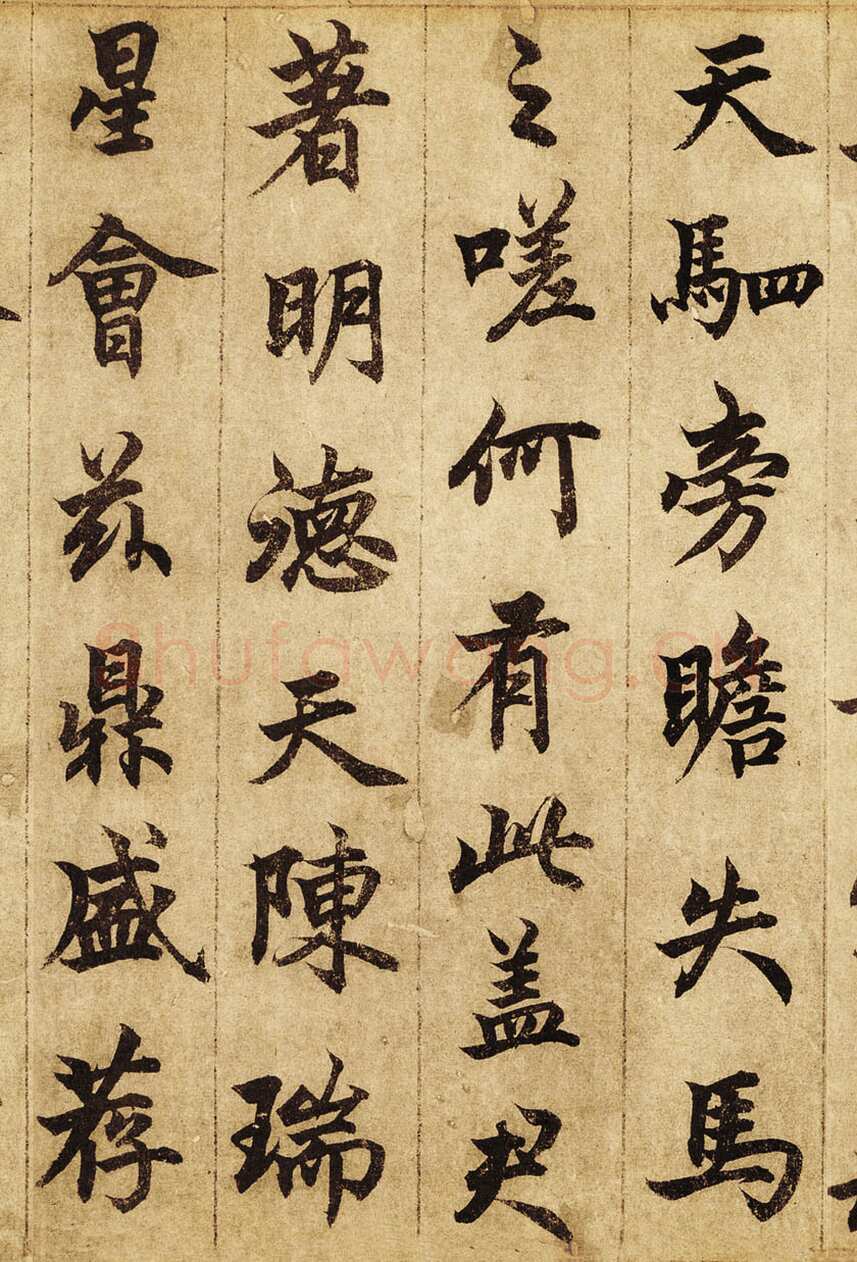 天駟旁瞻失馬
之嗟何有此盖
著明德天陳瑞
星會兹鼎盛荐
Shufawang.cn